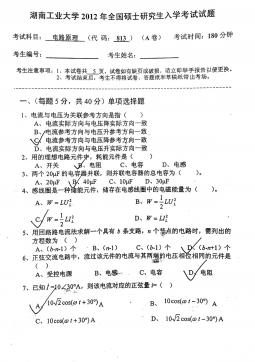 湖南工业大学 2012 年全国硕士研究生入学考试试题
考试科目： 电路原理 （代 码： 813 ）（A 卷） 考试时间：180 分钟
考生编号： 考生姓名：
考生注意事项：1、本试卷共 5 页，试卷如有缺页或破损，请立即举手报告以便更换。
2、考试结束后，考生不得将试卷、答题纸和草稿纸带出考场。
一、（每题 5 分，共 40 分）单项选择题
1、电流与电压为关联参考方向是指（ ）
A、电流实际方向与电压降实际方向一致
B、电流参考方向与电压升参考方向一致
C、电流参考方向与电压降参考方向一致
D、电流实际方向与电压升实际方向一致
2、用的理想电路元件中，耗能元件是（ ）
A、开关 B、电阻 C、电容 D、电感
3、两个 20μF 的电容器并联，则并联电容器的总电容为（ ）。
A、20μF B、40μF C、10μF D、30μF
4、感线圈是一种储能元件，储存在电感线圈中的电磁能量为（ ）。
5、用回路电流法求解一个具有 b 条支路，n 个节点的电路时，需列出的
方程数为 （ ）
A、(b-n) 个 B、(n-1) C、(b-1) 个 D、(b-n+1) 个
6、正弦交流电路中，流过该元件的电流与其两端的电压相位相同的元件是
（ ）
A、受控电源 B、电感 C、电容 D、电阻
7、已知 I=10∠30°A，则该电流对应的正弦量 i=（ ）
A、10√2cos(ωt+30°) A B、10cos(ωt−30°) A
C、10cos(ωt+30°) A D、10√2cos(ωt−30°) A